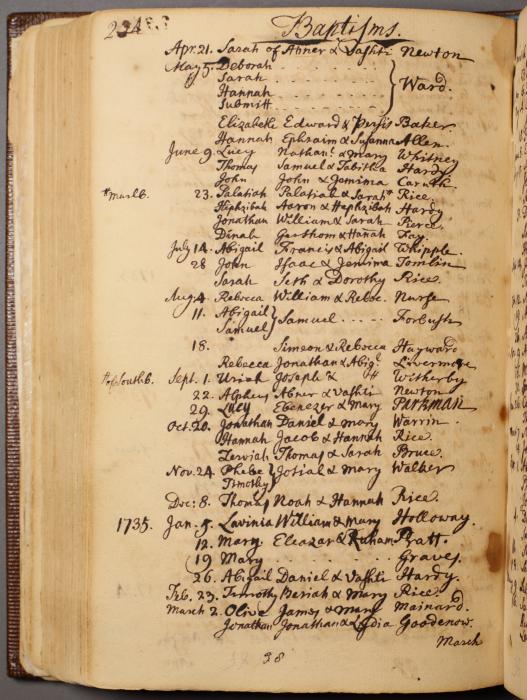 Baptisms.
Apr. 21. Sarah of Abner & Vashti Newton
May 5. Deborah
Sarah
Hannah
Submitt
Ward.
Elizabeth Edward & Persis Baker.
Hannah Ephraim & Susanna Allen.
June 9. Lucy Nathan.l & Mary Whitney
Thomas Samuel & Tabitha Hardy
John John & Jemima Caruth
*Marlb. 23. Palatiah Palatiah & Sarah* Rice.
Hephzibah Aaron & Hephzibah Hardy
Jonathan William & Sarah Pierce
Dinah Gershom & Hanah Fay.
July 14. Abigail Francis & Abigail Whipple.
28 John Isaac & Jemima Tomlin
Sarah Seth & Dorothy Rice.
Aug. 4 Rebecca William & Rebec. Nurse
11. Abigail
Samuel } Samuel Forbush
18. Simeon & Rebecca Hayward
Rebecca Jonathan & Abig.l Livermore
#of Southb. Sept. 1. Uriah Joseph & # Witherby
22. Alpheus Abner & Vashti Newton
29. Lucy Ebenezer & Mary PARKMAN
Oct. 20. Jonathan Daniel & Mary Warrin.
Hannah Jacob & Hannah Rice.
Zerviah Thomas & Sarah Bruce.
Nov. 24 Phebe
Timothy } Josiah & Mary Walker
Dec: 8. Thomas Noah & Hannah Rice.
1735. Jan. 5. Lavinia William & Mary Holloway.
12. Mary Eleazar & Ruhamah Pratt
19 Mary Graves.
26. Abigail Daniel & Vashti Hardy.
Feb. 23. Timothy Beriah & Mary Rice.
March 2. Olive James & Mary Mainard.
Jonathan Jonathan & Lydia Goodenow.
March
38